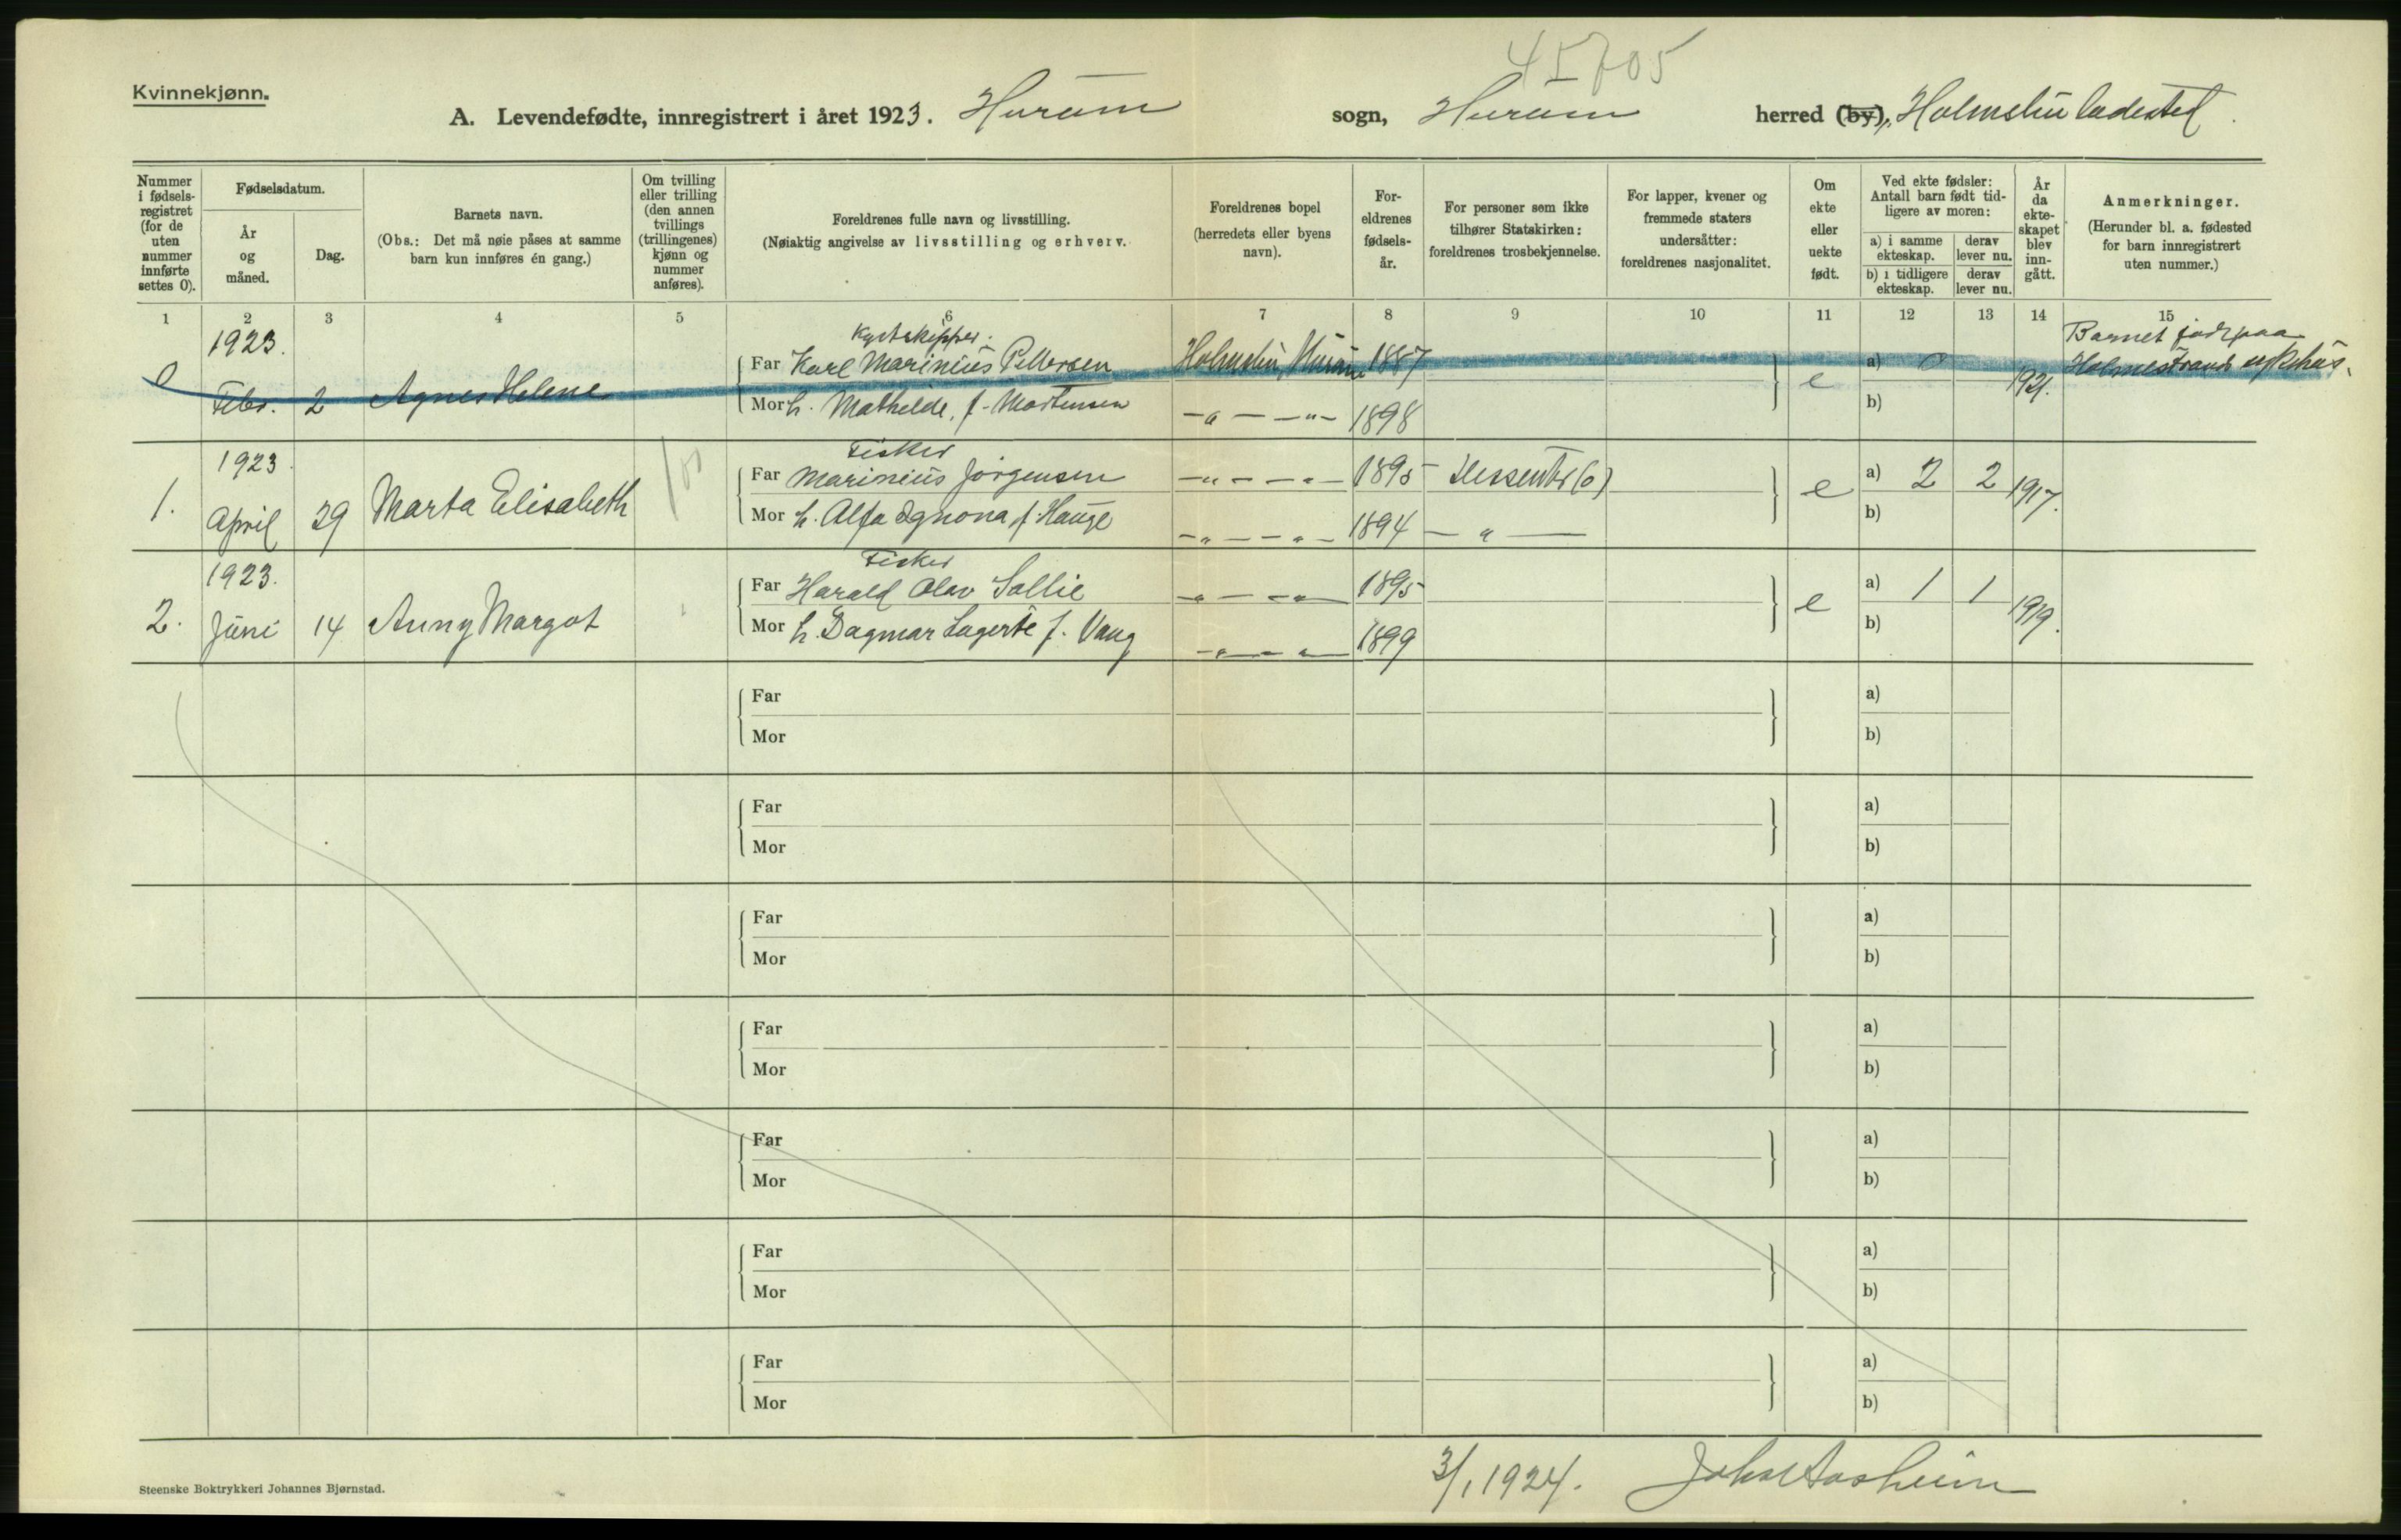 45705
Kvinnekjønn.
A. Levendefødte, innregistrert i året 1923. Hurum sogn, Hurum herred (by), Holmsbu ladested.
Nummer i fødsels-registret (for de uten nummer innførte settes 0).
Fødselsdatum.
År og måned.
Dag.
Barnets navn.
(Obs.: Det må nøie påses at samme barn kun innføres én gang.)
Om tvilling eller trilling (den annen tvillings (trillingenes) kjønn og nummer anføres).
Foreldrenes fulle navn og livsstilling.
(Nøiaktig angivelse av livsstilling og erhverv.)
Foreldrenes bopel (herredets eller byens navn).
For-eldrenes fødsels-år.
For personer som ikke tilhører Statskirken: foreldrenes trosbekjennelse.
For lapper, kvener og fremmede staters undersåtter: foreldrenes nasjonalitet.
Om ekte eller uekte født.
Ved ekte fødsler: Antall barn født tid-ligere av moren:
a) i samme ekteskap. derav lever nu.
b) i tidligere ekteskap. derav lever nu.
År da ekte-skapet blev inn-gått.
Anmerkninger.
(Herunder bl. a. fødested for barn innregistrert uten nummer.)
1 2 3 4 5 6 7 8 9 10 11 12 13 14 15
1923. Kystskipper. Barnet født paa
0 Far Karl Marinius Pettersen Holmsbu, Hurum 1887 a) 0 Holmestrand sykehus.
Febr. 2 Agnes Helene Mor h. Mathilde, f. Mortensen -"- -"- 1898 e b) 1921.
1923 Fisker
Far Marinius Jørgensen -"- -"- 1895 Dissenter (6) a) 2 2
1. April 29 Marta Elisabeth Mor h. Alfa Ognona f. Hauge -"- -"- 1894 -"- e b) 1917.
1923. Fisker
Far Harald Olav Sollie -"- -"- 1895 a) 1 1
2. Juni 14 Anny Margot Mor h. Dagmar Lagerte f. Vang -"- -"- 1899 e b) 1919.
Far a)
Mor b)
Far a)
Mor b)
Far a)
Mor b)
Far a)
Mor b)
Far a)
Mor b)
Far a)
Mor b)
Far a)
Mor b)
3/1 1924.
Steenske Boktrykkeri Johannes Bjørnstad.